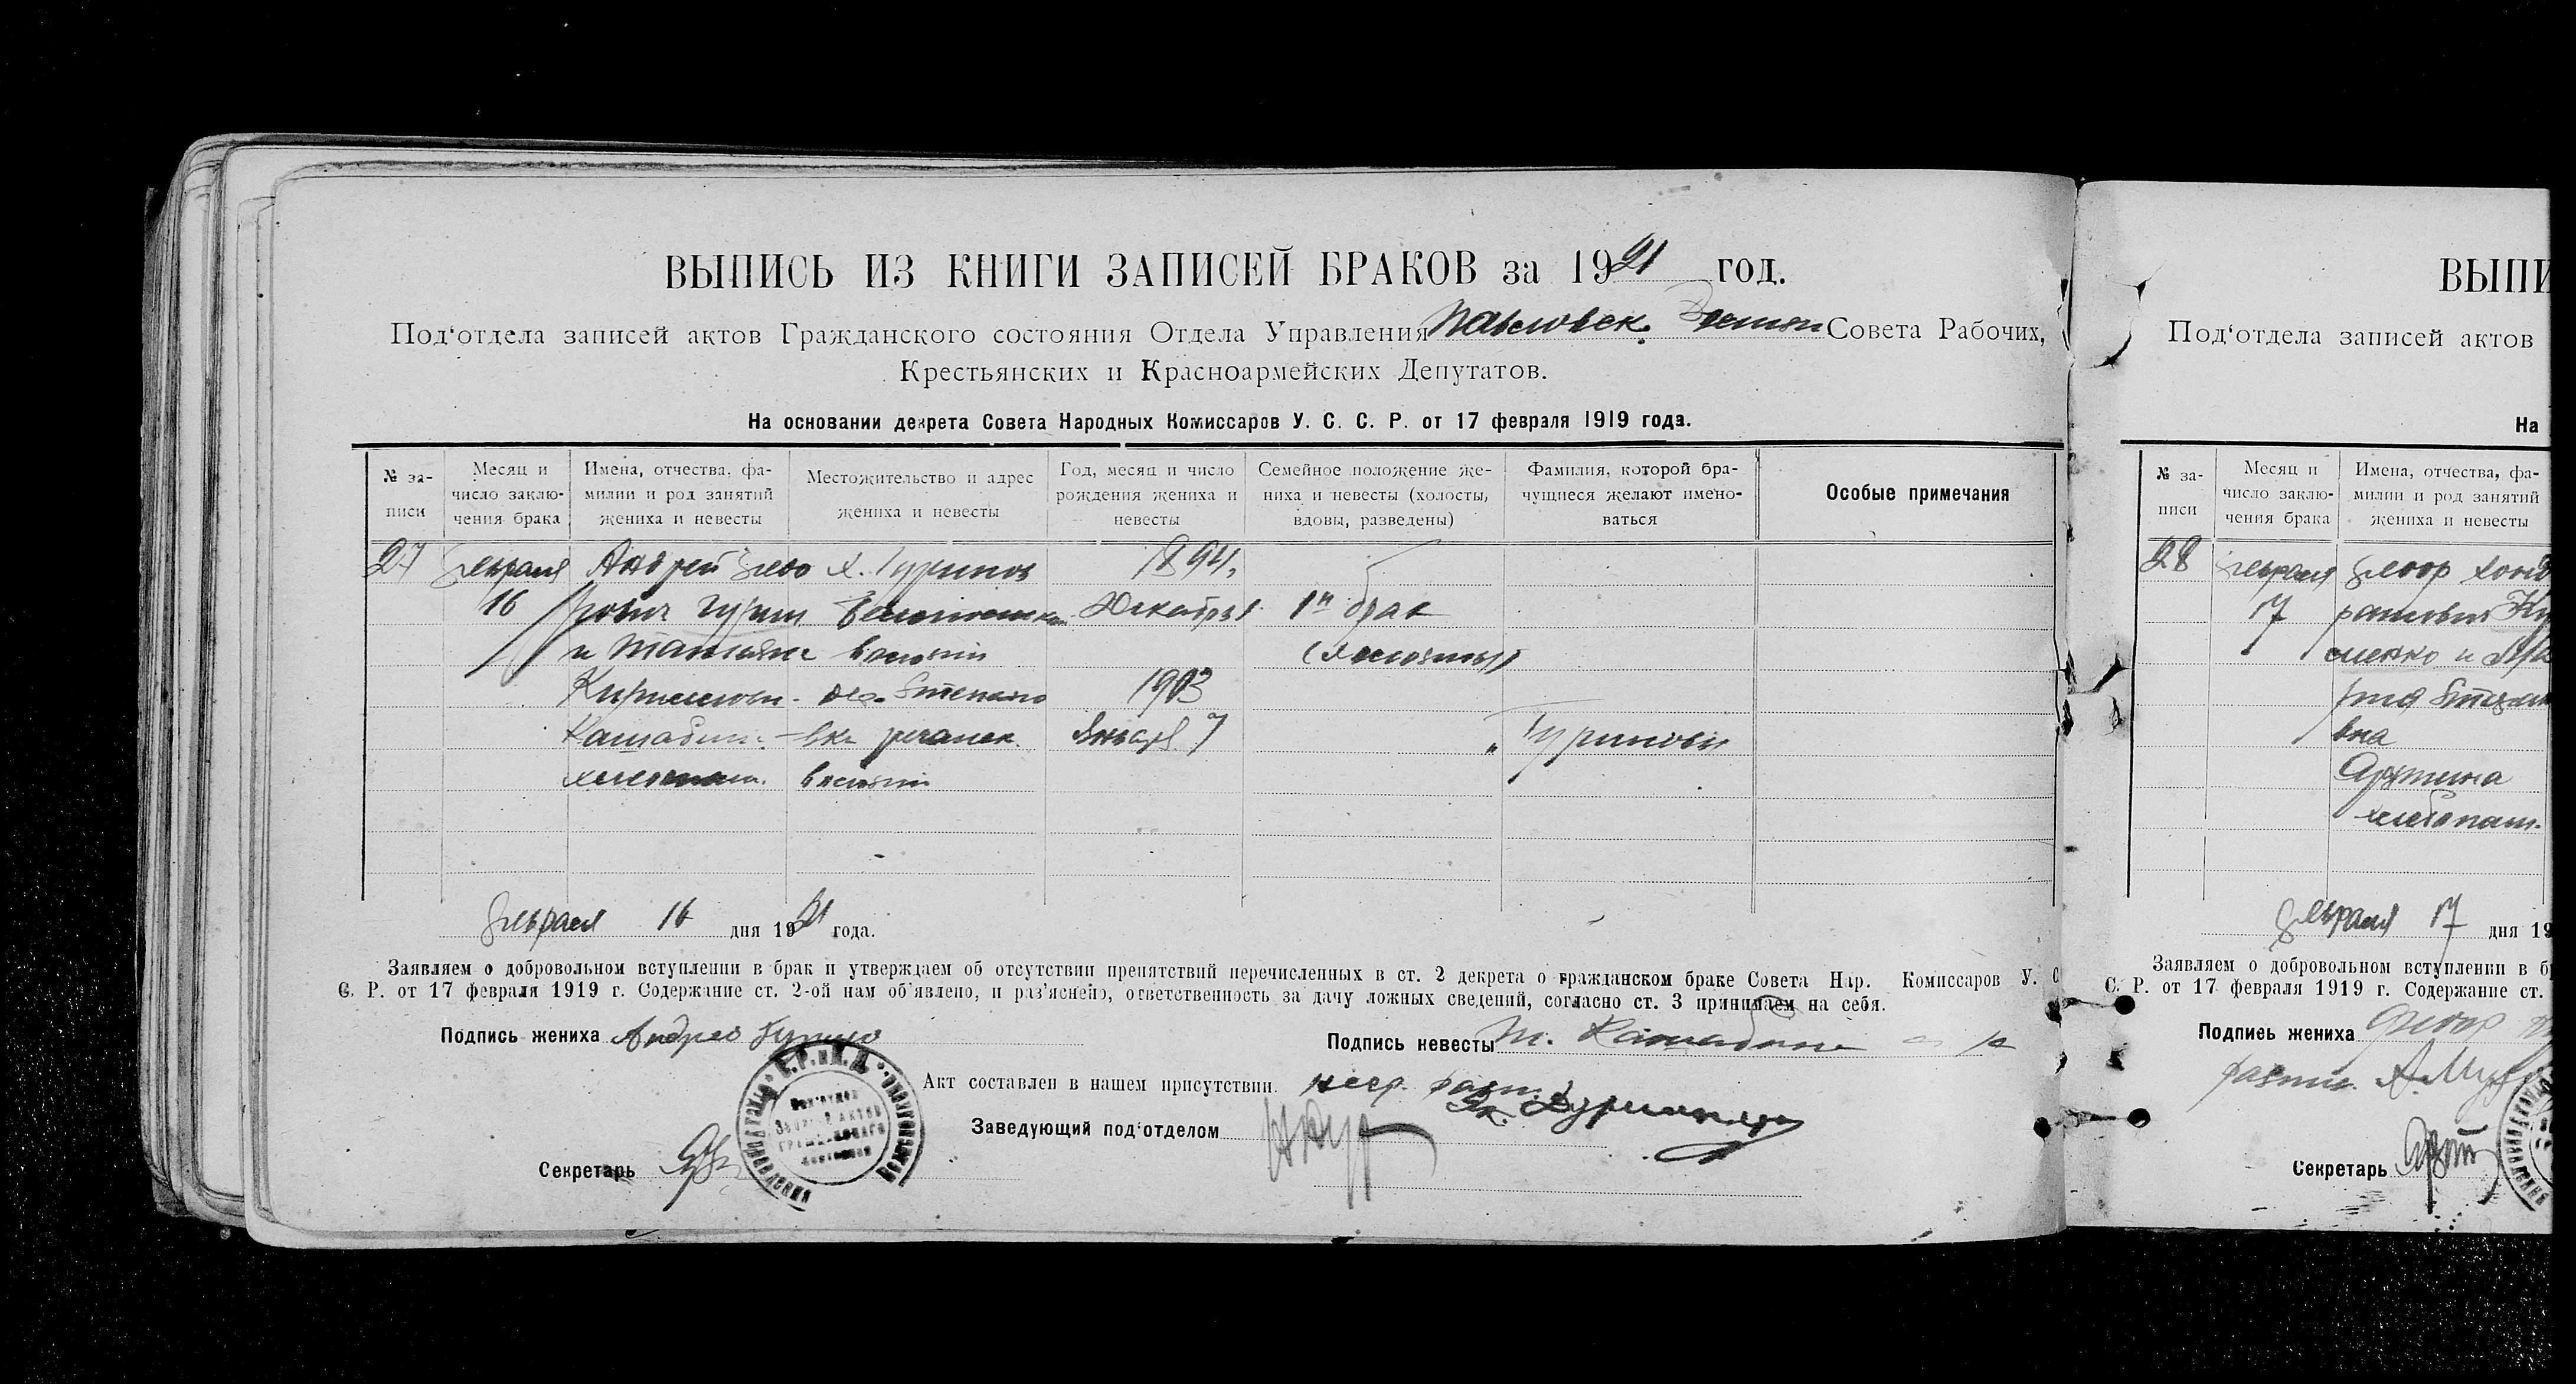 ВЫПИСЬ ИЗ КНИГИ ЗАПИСЕЙ БРАКОВ за 1921 год.
Под‘отдела записей актов Гражданского состояния Отдела Управления Павловск. Совета Рабочих,
Крестьянских и Красноармейских Депутатов.
На основании декрета Совета Народных Комиссаров У. С. С. Р. от 17 февраля 1919 года.
№ за-
писи
Месяц и
число заклю-
чения брака
Имена, отчества, фа-
милии и род занятий
жениха и невесты
Местожительство и адрес
жениха и невесты
Год, месяц и число
рождения жениха и
невесты
Семейное положение же-
ниха и невесты (холосты,
вдовы, разведены)
Фамилия, которой бра-
чущиеся желают имено-
ваться
Особые примечания
27 февраля Андрей Федо х. Гуринов 1894,
16 рович Гурин Декабря 1й брак
и Татьяна волости
Кирилловн. 1903
вка Январ 7 Гуриновы
волости
февраля 16 дня 1921 года.
Заявляем о добровольном вступлении в брак и утверждаем об отсутствии препятствий перечисленных в ст. 2 декрета о гражданском браке Совета Нар. Комиссаров У. С
С. Р. от 17 февраля 1919 г. Содержание ст. 2-ой нам об’явлено, и раз’яснено, ответственность за дачу ложных сведений, согласно ст. 3 принимаем на себя.
Подпись жениха Андрей Гурин
Подпись невесты Т.
Акт составлен в нашем присутствии.
Заведующий под‘отделом
Секретарь
ВЫПИ
Под‘отдела записей актов
На
№ за-
писи
Месяц и
число заклю-
чения брака
Имена, отчества, фа-
милии и род занятий
жениха и невесты
28 февраля Федор Конд
17 ратович
вна
хлебопаш.
февраля 17 дня 19
Заявляем о добровольном вступлении в б
С. Р. от 17 февраля 1919 г. Содержание ст.
Подпись жениха Федор
Секретарь